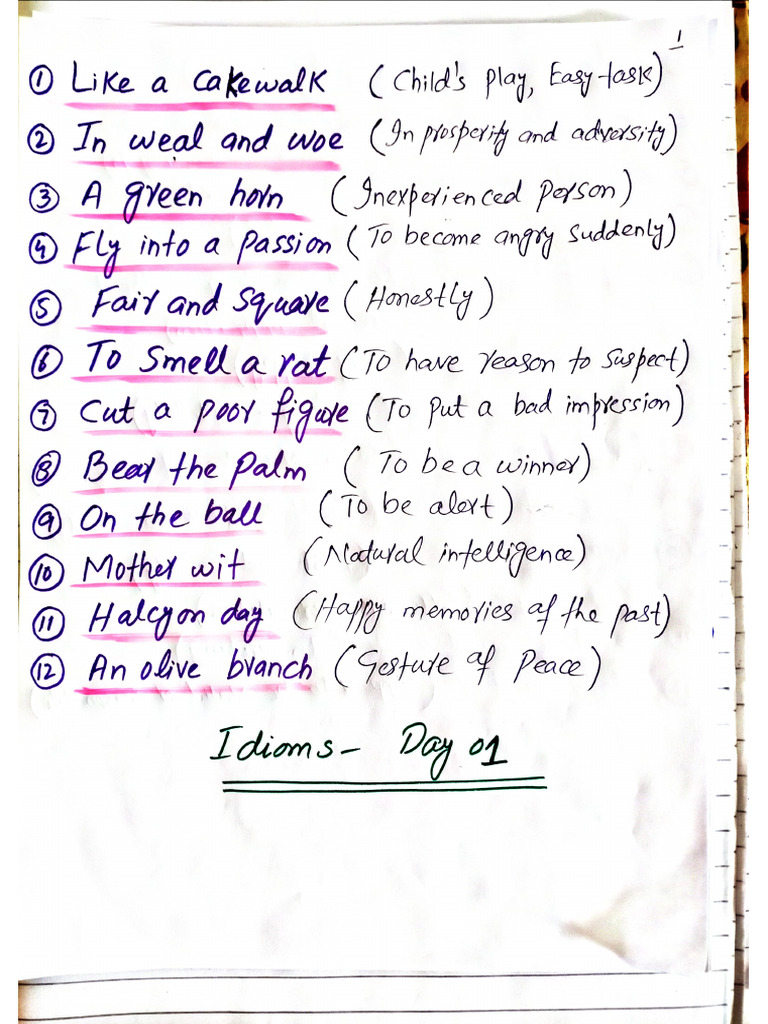 1
① Like a cakewalk (Child's play, Easy-task)
② In weal and woe (In prosperity and adversity)
③ A green horn (Inexperienced person)
④ Fly into a passion (To become angry suddenly)
⑤ Fair and square (Honestly)
⑥ To smell a rat (To have reason to suspect)
⑦ Cut a poor figure (To put a bad impression)
⑧ Bear the palm (To be a winner)
⑨ On the ball (To be alert)
⑩ Mother wit (Natural intelligence)
⑪ Halcyon day (Happy memories of the past)
⑫ An olive branch (Gesture of Peace)
Idioms - Day 01